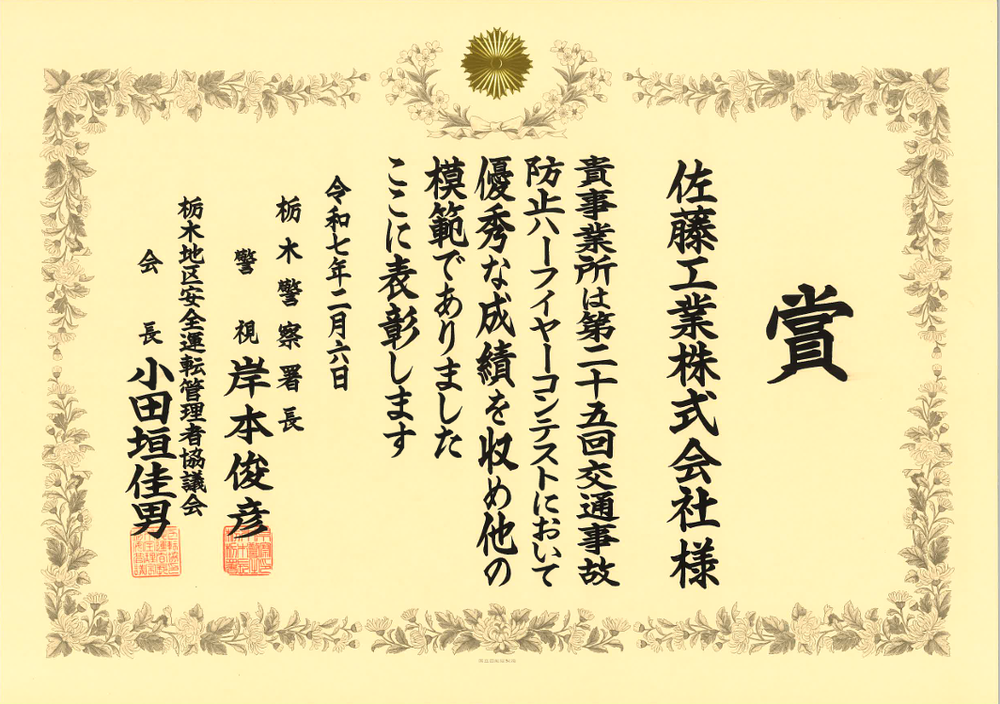 賞
佐藤工業株式会社 様
貴事業所は第二十五回交通事故
防止ハーフイヤーコンテストにおいて
優秀な成績を収め他の
模範でありました
ここに表彰します
令和七年二月六日
栃木警察署長
警視 岸本俊彦
栃木地区安全運転管理者協議会
会長 小田垣佳男